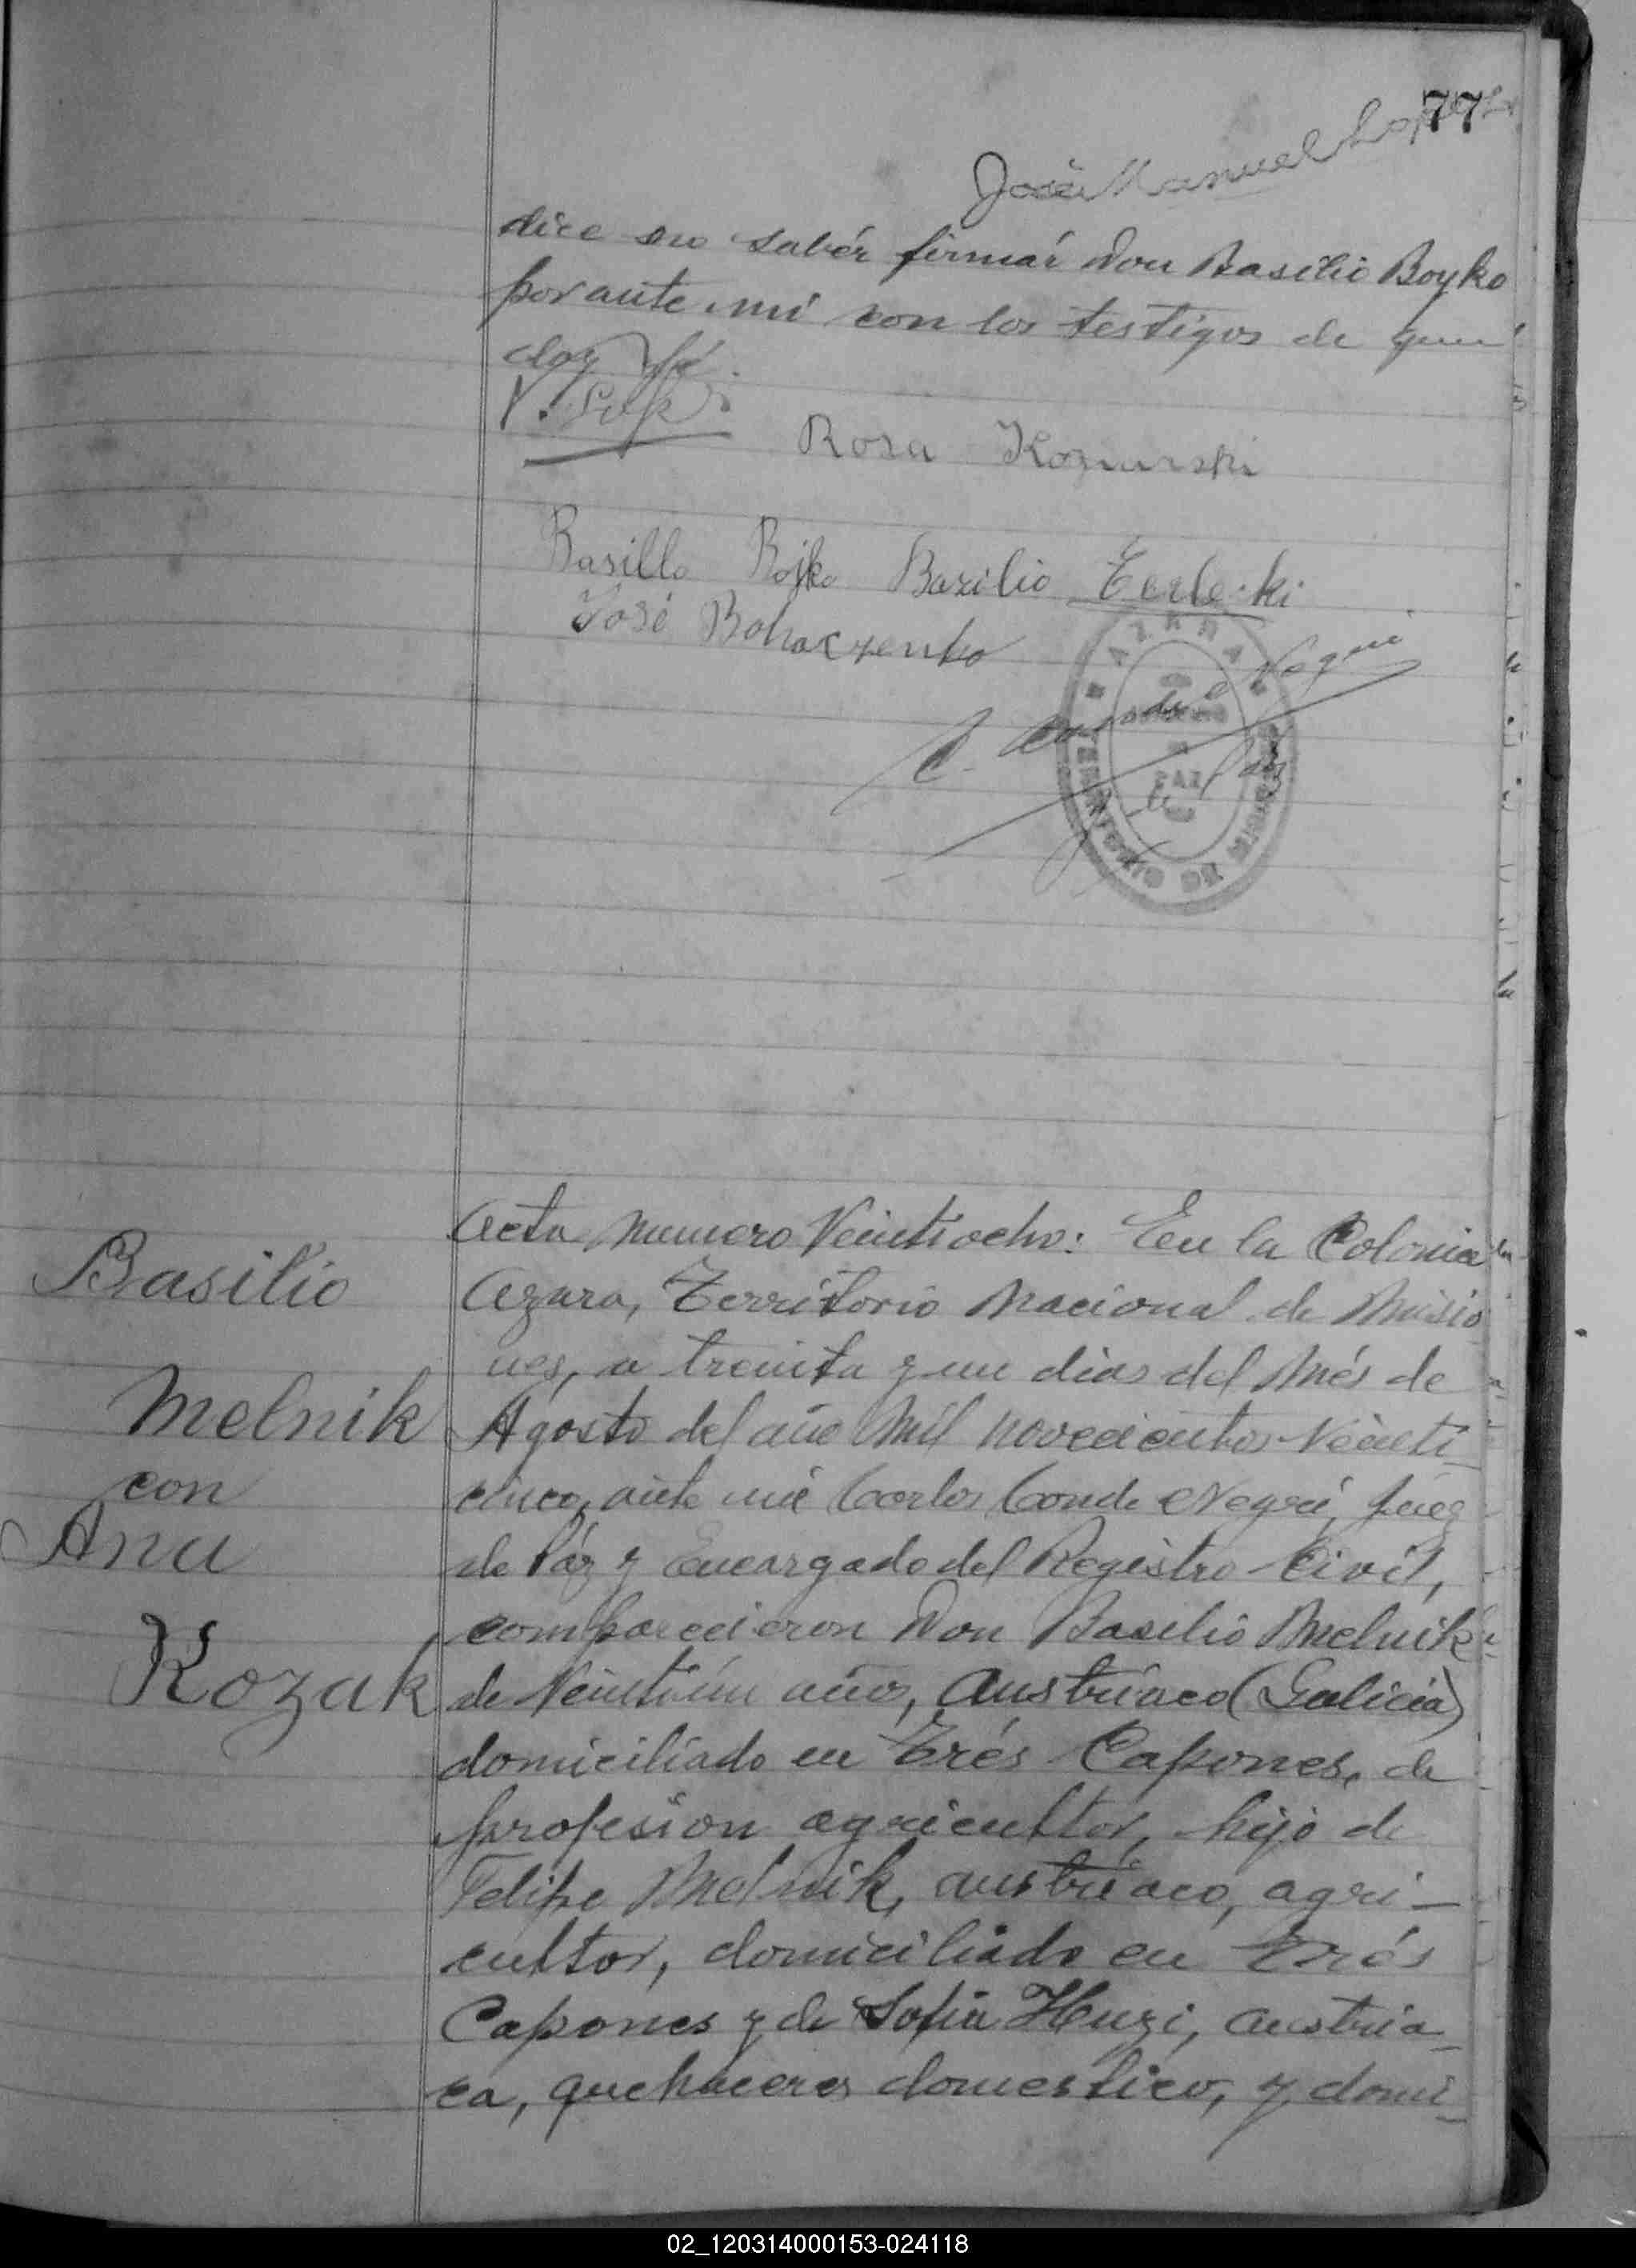 77
José Manuel Lopez
dice no sabér firmár Don Basilio Boyko
por ante mi con los testigos de que
doy fé
Rosa
Basillo Bojko Bazilio
José Bohaczenko
C. Conde Negri
Juez de Paz
AZARA
TERRITORIO DE MISIONES
PAZ
Basilio
Melnik
con
Ana
Kozak
Acta numero Veintiocho: En la Colonia
Azara, Territorio Nacional de Misio
nes, a treinta y un dias del Més de
Agosto del año Mil novecientos Veinti_
cinco, ante mi Carlos Conde Negri, Juez
de Páz y Encargado del Registro Civil,
comparecieron Don Basilio Melnik
de Veintiún años, Austríaco (Galicia)
domiciliado en Trés Capones, de
profesion agricultor, hijo de
Felipe Melnik, austríaco, agri_
cultor, domiciliado en Trés
Capones y de Sofia Huzi, austria_
ca, quehaceres domestico, y domi_
02_120314000153-024118